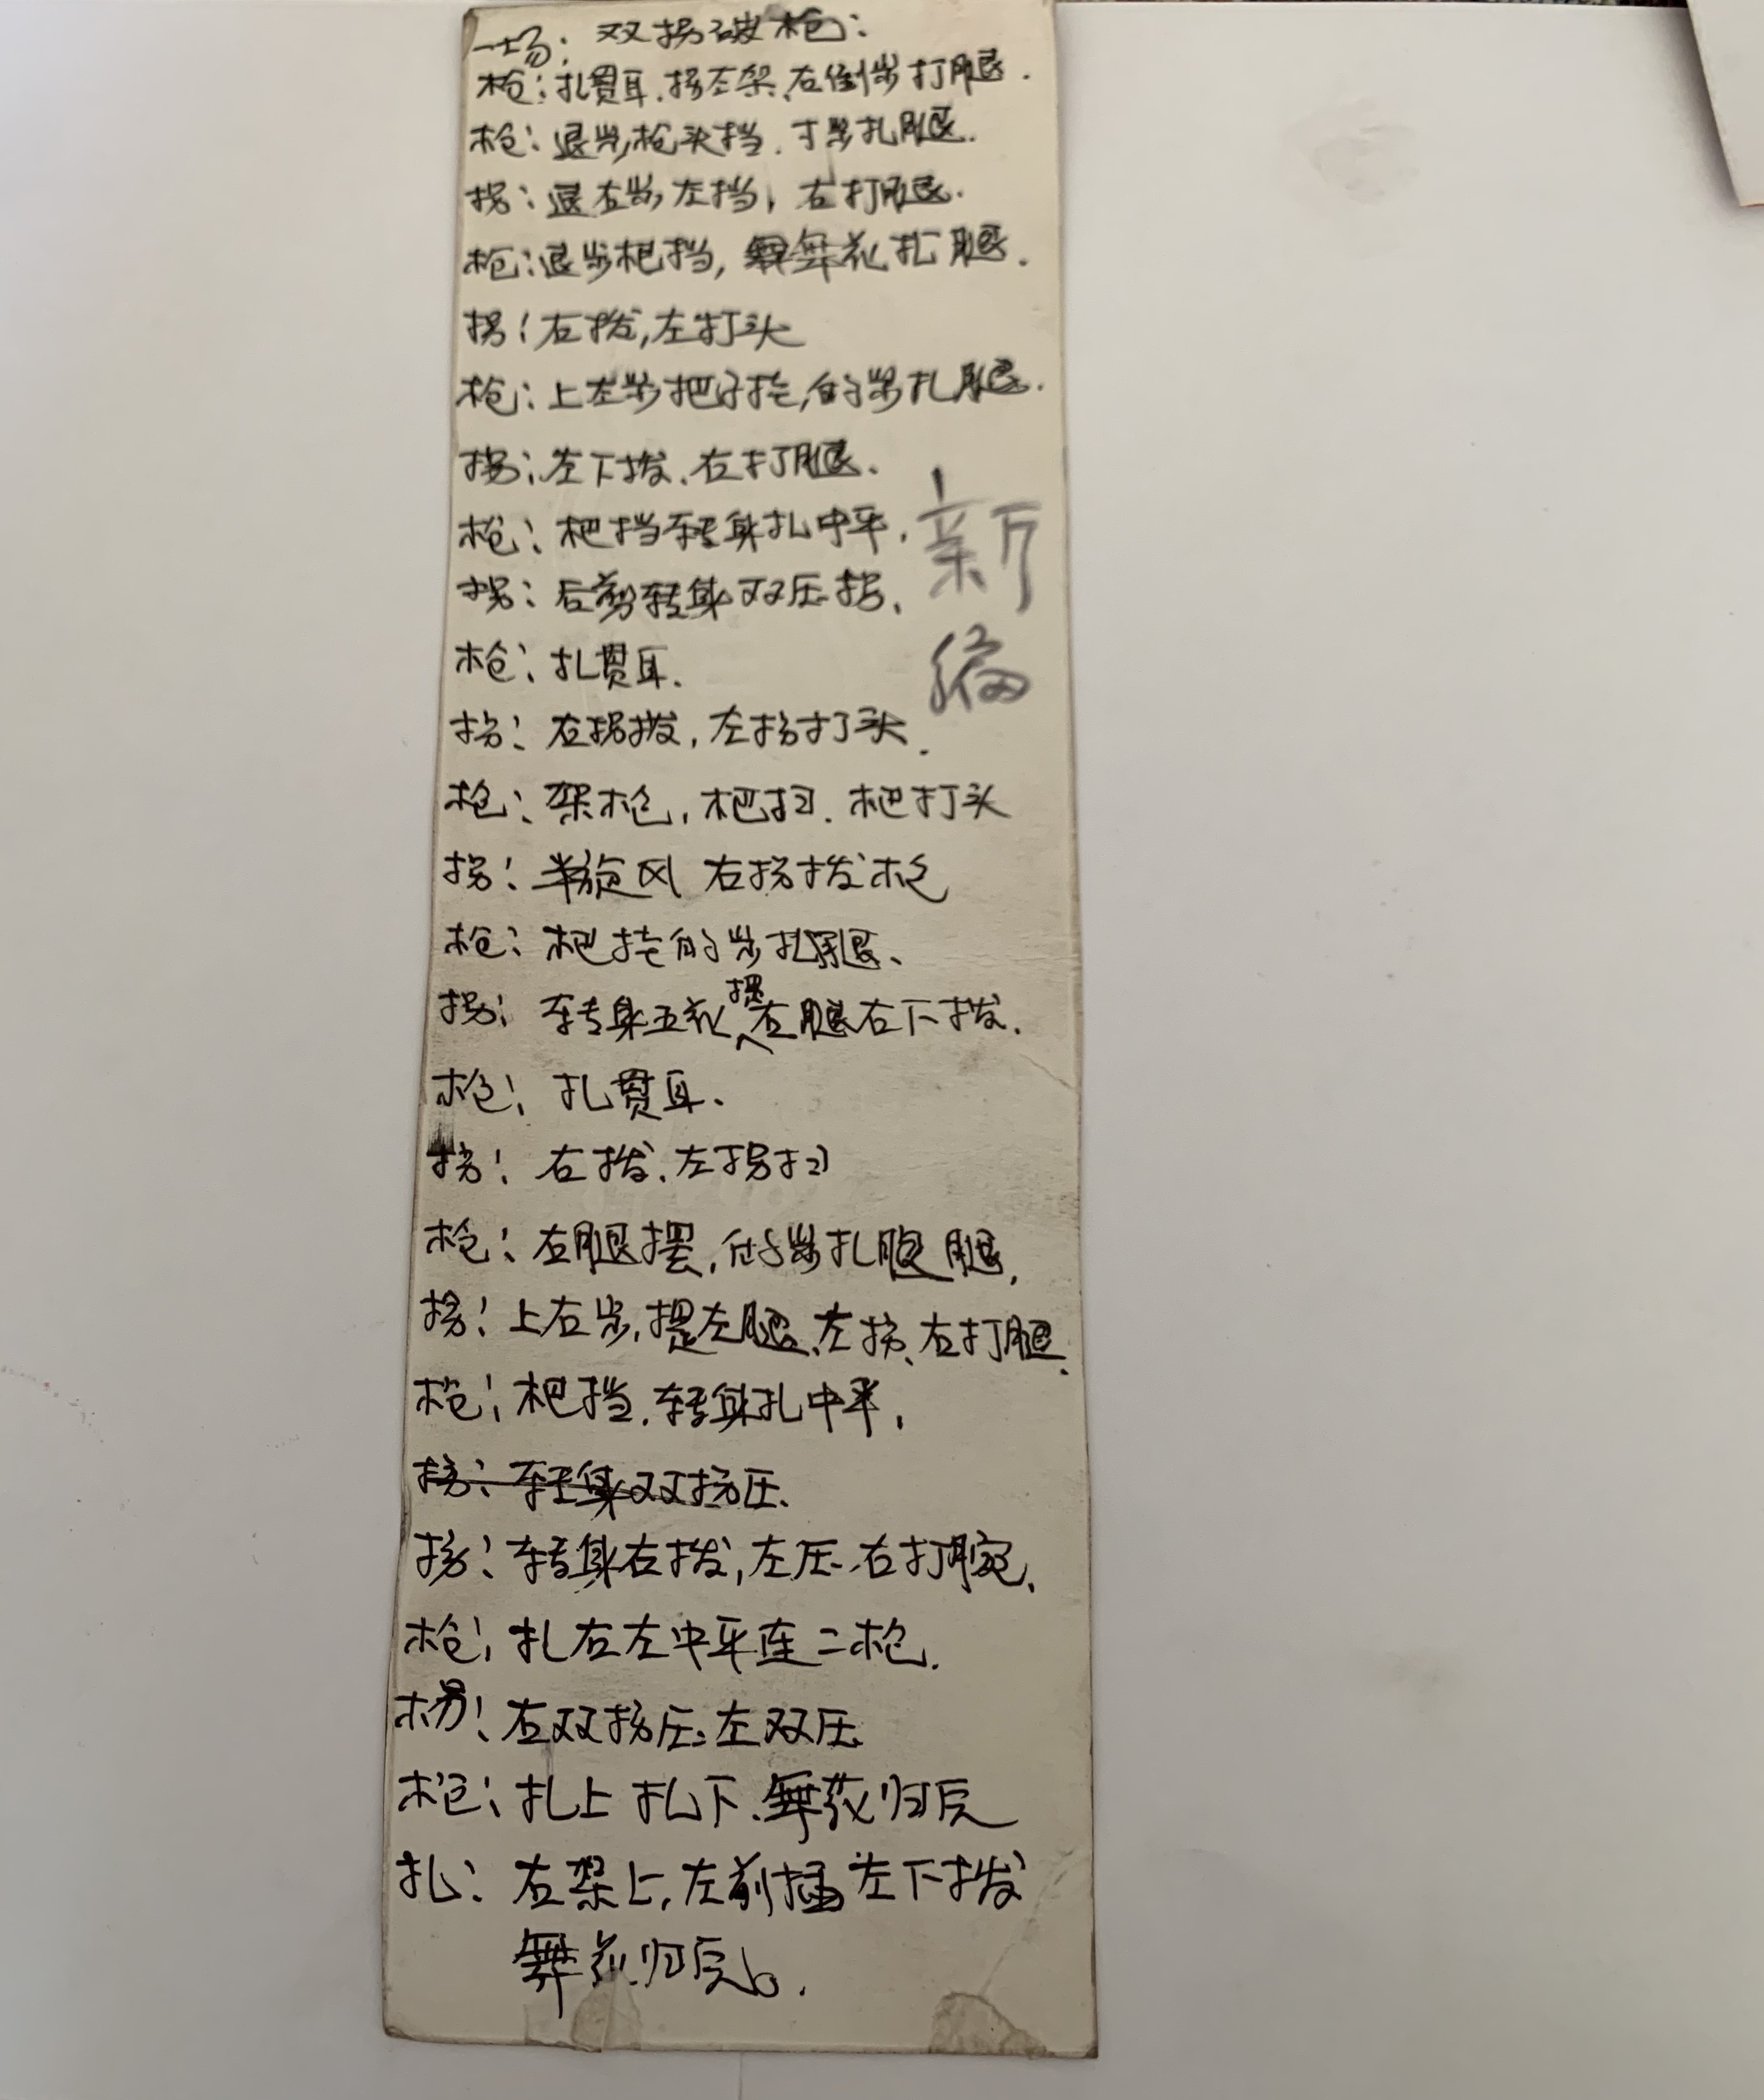 一场: 双拐破枪:
枪: 扎贯耳. 拐左架. 右倒步打腿.
枪: 退步枪头挡. 寸步扎腿.
拐: 退右步, 左挡, 右打腿.
枪: 退步把挡, 舞花扎腿.
拐: 右拨, 左打头
枪: 上左步把子挂, 仆步扎腿.
拐: 左下拨. 右打腿.
枪: 把挡转身扎中平.
新编
拐: 后剪转身双压拐.
枪: 扎贯耳.
拐: 右拐拨, 左拐打头.
枪: 架枪, 把扫. 把打头
拐: 半旋风 右拐拨枪
枪: 把挂 步扎腿.
拐: 转身五花提左腿右下拨.
枪: 扎贯耳.
拐: 右拨. 左拐扫
枪: 右腿摆, 步扎腿,
拐: 上右步, 提左腿、左拐、右打腿.
枪: 把挡. 转身扎中平,
拐: 转身双拐压.
拐: 转身右拨, 左压. 右打腕.
枪: 扎右左中平连二枪.
拐: 右双拐压. 左双压
枪: 扎上扎下. 舞花归后
扎: 右架上, 左前插左下拨
舞花归后.